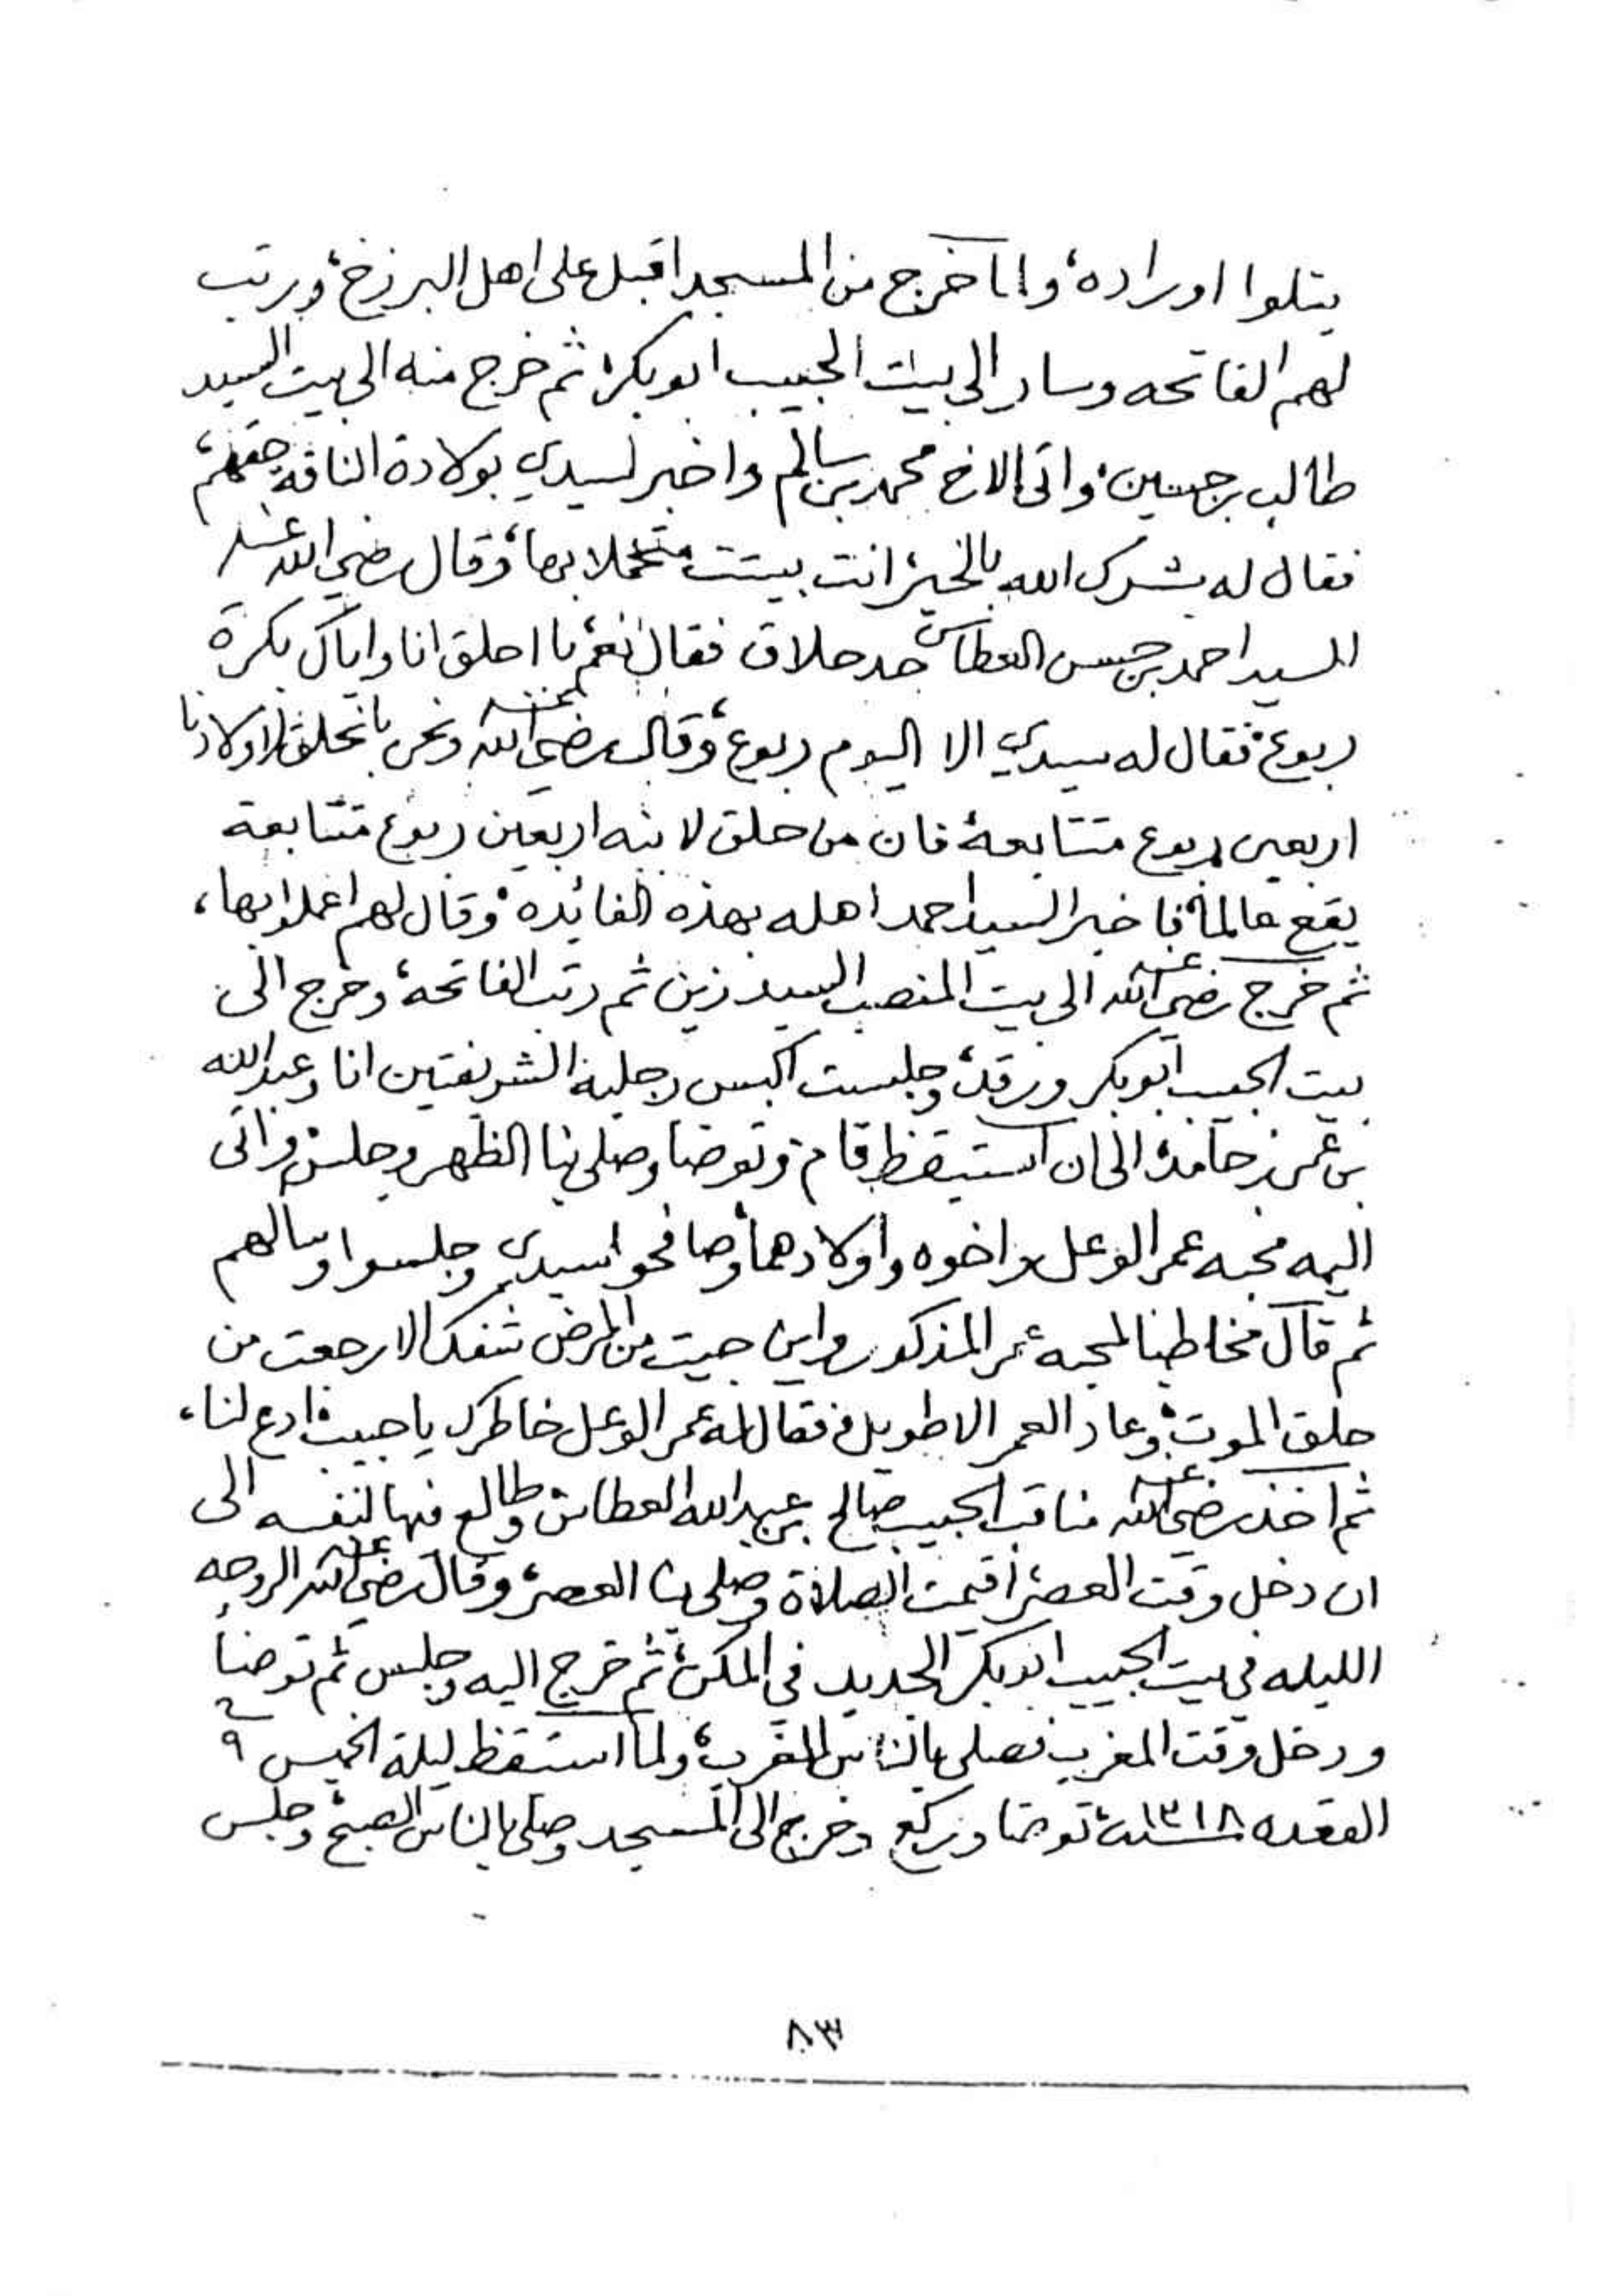 يتلوا اوراده، ولما خرج من المسجد اقبل على اهل البرزخ، ورتب
لهم الفاتحه وسار الى بيت الحبيب ابوبكر، ثم خرج منه الى بيت السيد
طالب بن حسين، واتى الاخ محمد بن سالم واخبر لسيدي بولادة الناقه حقهم،
فقال له بشرك الله بالخير، انت بيتت متحملا بها، وقال رضي الله عنه
السيد احمد بن حسن العطاس حد حلاق فقال نعم، با احلق انا واياك بكرة
ربوع، فقال له سيدي الا اليوم ربوع، وقال رضي الله عنه ونحن با نحلق لاولادنا
اربعين ربوع متتابعة، فان من حلق لابنه اربعين ربوع متتابعة
يقع عالما، فاخبر السيد احمد اهله بهذه الفائده، وقال لهم اعملوا بها،
ثم خرج رضي الله عنه الى بيت المنصب السيد زين ثم رتب الفاتحه، وخرج الى
بيت الحبيب ابوبكر ورقد، وجلست اكبس رجليه الشريفتين انا وعبدالله
بن عمر بن حامد، الى ان استيقظ، قام، وتوضا وصلى بنا الظهر وجلس، واتى
اليه محبه عمر الوعل واخوه واولادهما، وصافحوا سيدي وجلسوا وسالهم
ثم قال مخاطبا لمحبه عمر المذكور واين جيت من المرض شفك الا رجعت من
حلق الموت، وعاد العمر الا طويل، فقال له عمر الوعل خاطرك يا حبيب، ادع لنا،
ثم اخذ رضي الله عنه مناقب الحبيب صالح بن عبدالله العطاس وطالع فيها لنفسه الى
ان دخل وقت العصر، اقيمت الصلاة وصلى بنا العصر، وقال رضي الله عنه الروحه
الليله في بيت الحبيب ابوبكر الجديد في المكن، ثم خرج اليه وجلس ثم توضأ
ودخل وقت المغرب فصلى بالناس المغرب، ولما استيقظ ليلة الخميس ٩
القعده ١٣١٨ سنة، توضا وركع وخرج الى المسجد وصلى بالناس الصبح، وجلس
٨٣